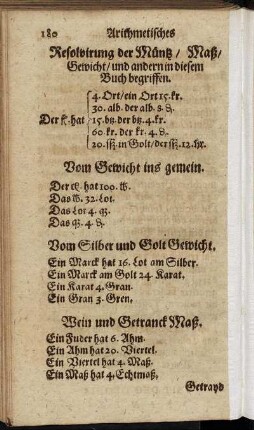 180 Arithmetisches
Resolvirung der Müntz / Maß /
Gewicht / und andern in diesem
Buch begriffen.
4. Ort / ein Ort 15. kr.
30. alb. der alb. 8. ₰.
Der fl. hat 15. btz. der btz. 4. kr.
60. kr. der kr. 4. ₰.
20. ß in Golt / der ß 12. hr.
Vom Gewicht ins gemein.
Der ctz. hat 100. ℔.
Das ℔. 32. Lot.
Das Lot 4. q.
Das q. 4. ₰
Vom Silber und Golt Gewicht.
Ein Marck hat 16. Lot am Silber.
Ein Marck am Golt 24 Karat.
Ein Karat 4. Gran.
Ein Gran 3. Gren.
Wein und Getranck Maß.
Ein Fuder hat 6. Ahm.
Ein Ahm hat 20. Viertel.
Ein Viertel hat 4. Maß.
Ein Maß hat 4. Echtmaß.
Getrayd